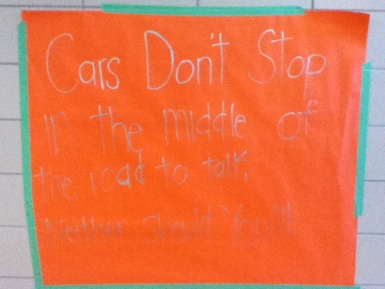 Cars Don't Stop
in the middle of
the road to talk,
Neither should You!!!